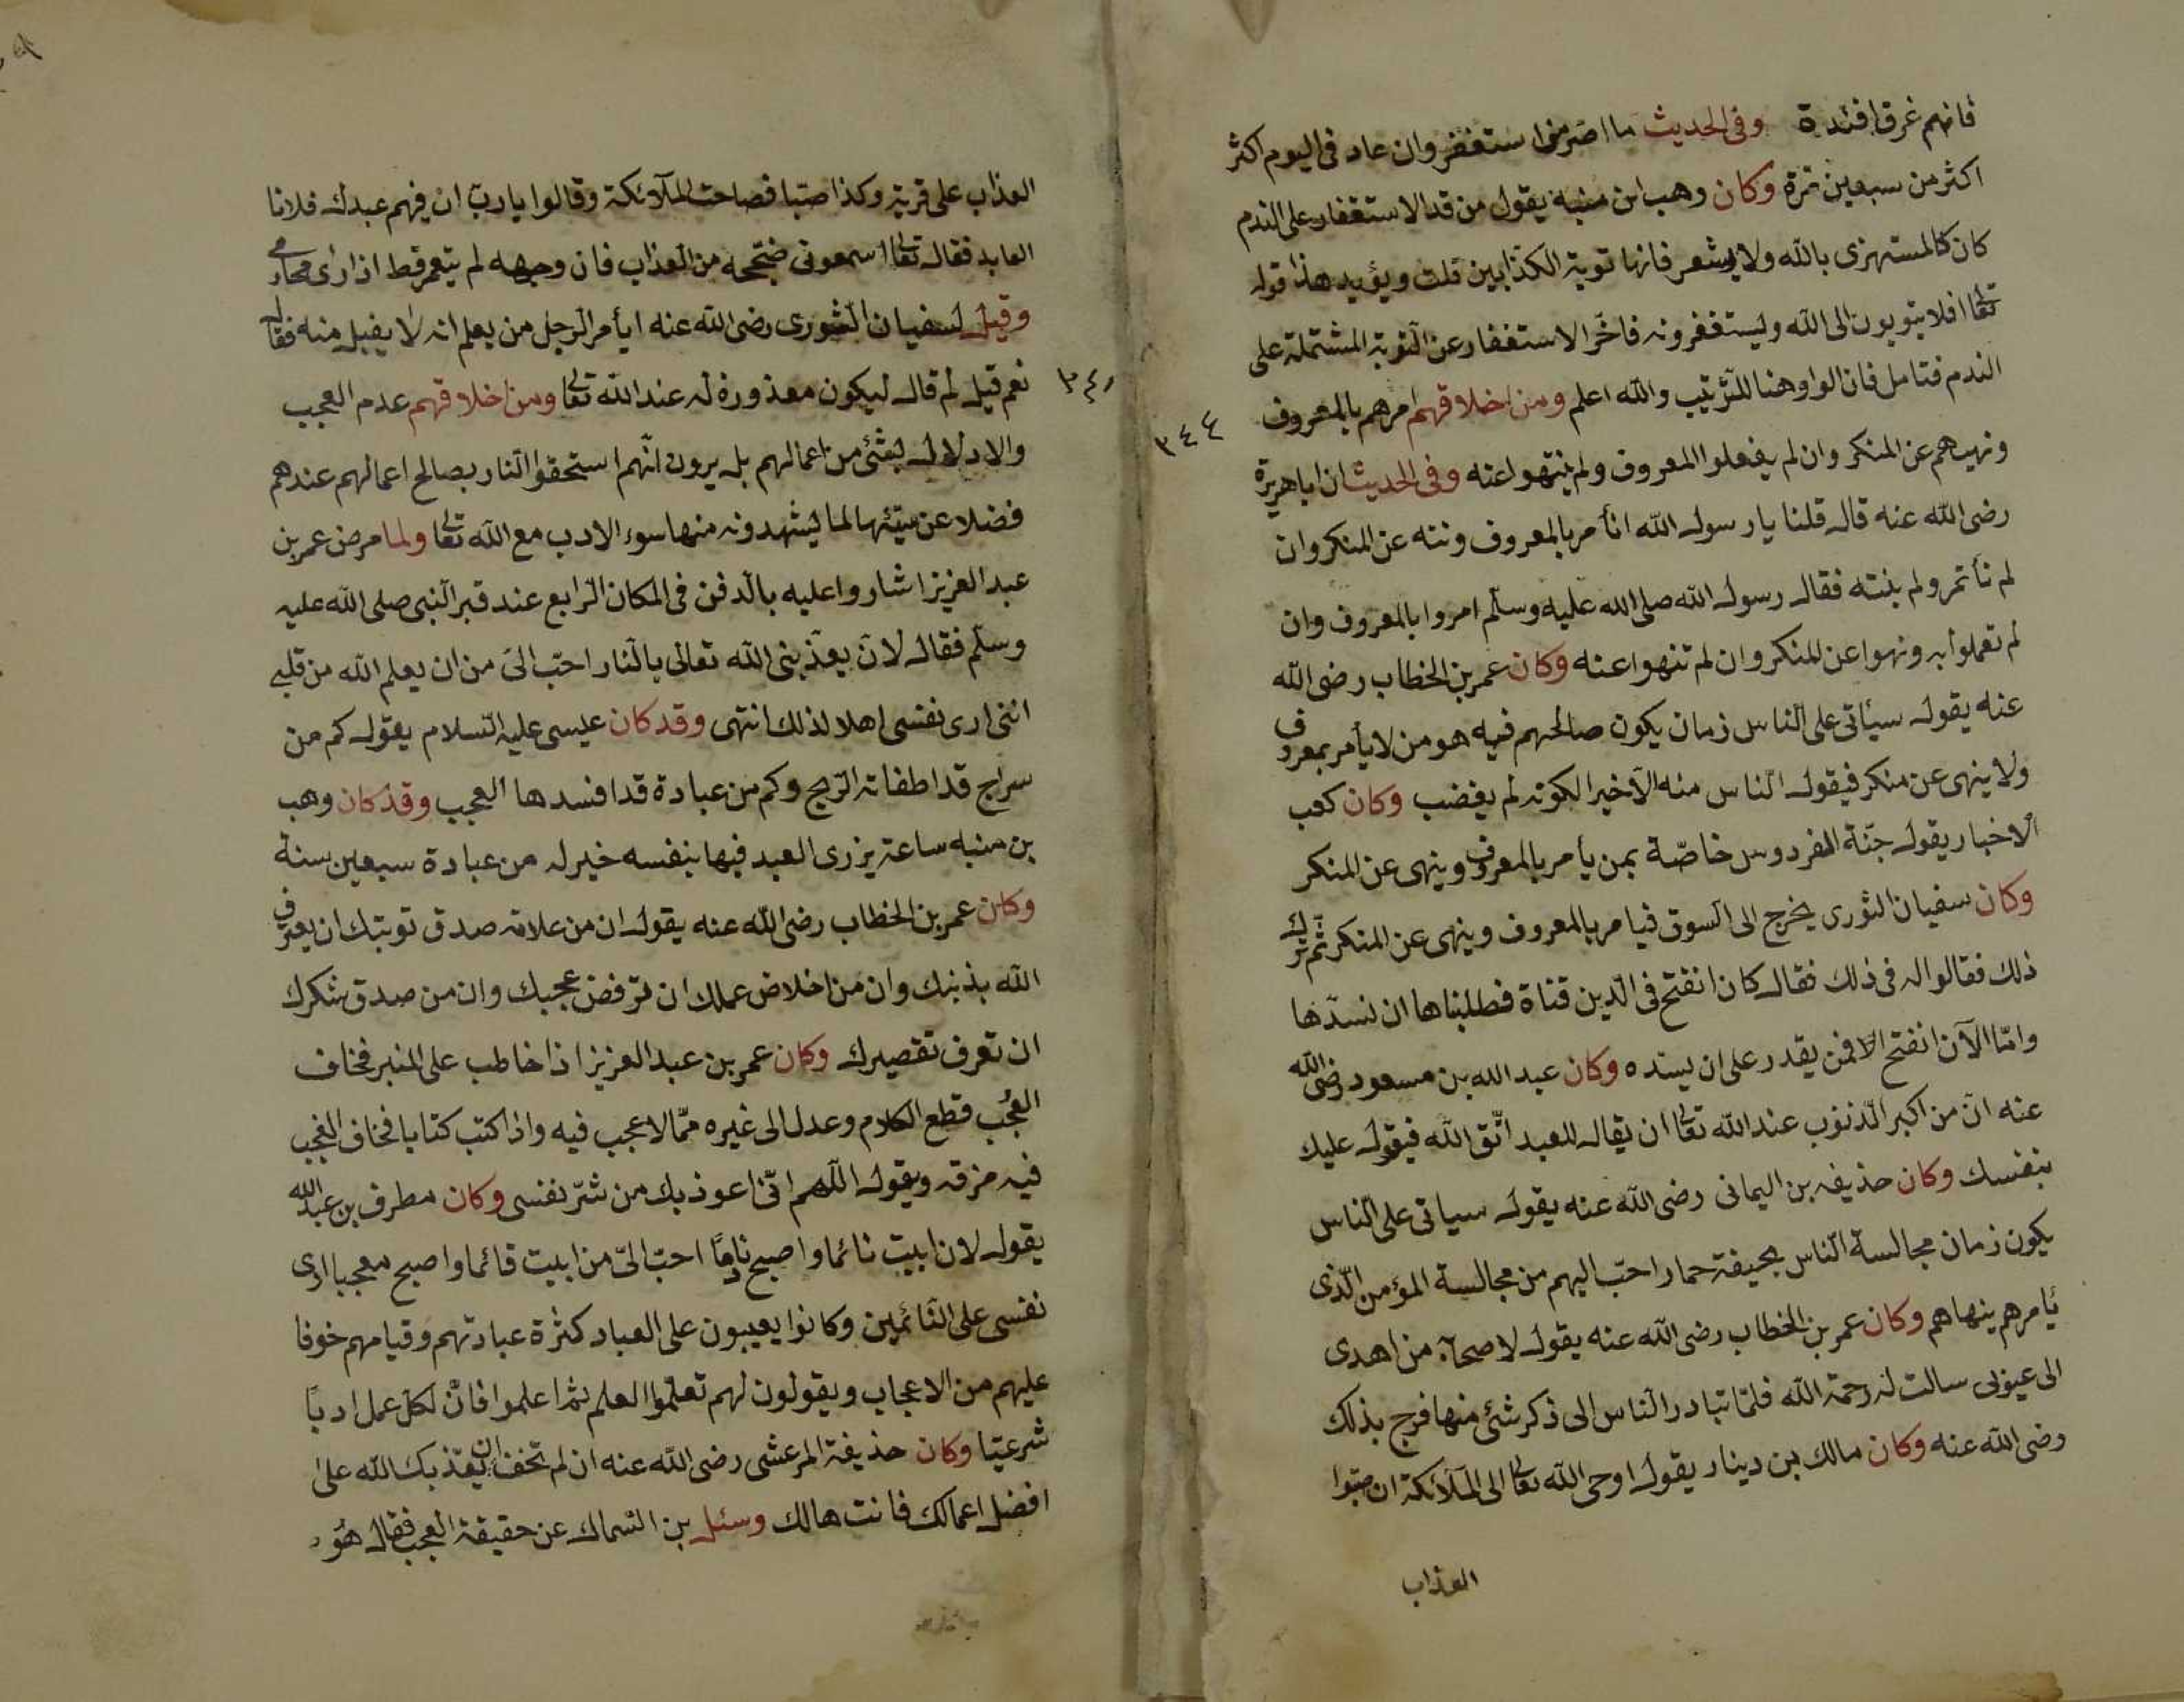 فانهم غرق افئدة وفى الحديث ما اصر من استغفر وان عاد فى اليوم اكثر
اكثر من سبعين مرة وكان وهب ابن منبه يقول من قدالاستغفار على الندم
كان كالمستهزى بالله ولا يشعر فانها توبة الكذابين قلت ويؤيد هذا قوله
تعا افلا يتوبون الى الله ويستغفرونه فاخّر الاستغفار عن التوبة المشتملة على
الندم فتامل فان الواو هنا للترتيب والله اعلم ومن اخلاقهم امرهم بالمعروف
٣٤٤
ونهيهم عن المنكر وان لم يفعلوا المعروف ولم ينتهوا عنه وفى الحديث ان ابا هريرة
رضى الله عنه قال قلنا يا رسول الله انأمر بالمعروف وننه عن المنكر وان
لم نأتمر ولم ننته فقال رسول الله صلى الله عليه وسلم امروا بالمعروف وان
لم تعملوا به ونهوا عن المنكر وان لم تنهوا عنه وكان عمر بن الخطاب رضى الله
عنه يقول سيأتى على الناس زمان يكون صالحهم فيه هو من لا يأمر بمعروف
ولا ينهى عن منكر فيقول الناس منه الا خيرا لكونه لم يغضب وكان كعب
الاخبار يقول جنّة الفردوس خاصّة بمن يأمر بالمعروف وينهى عن المنكر
وكان سفيان الثورى يخرج الى السوق فيامر بالمعروف وينهى عن المنكر ثم ترك
ذلك فقالوا له فى ذلك فقال كان انفتح فى الدين قناة فطلبناها ان نسدّها
وامّا الآن انفتح الا فمن يقدر على ان يسدّه وكان عبد الله بن مسعود رضى الله
عنه انّ من اكبر الذنوب عند الله تعا ان يقال للعبد اتّق الله فيقول عليك
بنفسك وكان حذيفه بن اليمانى رضى الله عنه يقول سياتى على الناس
يكون زمان مجالسة الناس بجيفة حمار احبّ اليهم من مجالسة المؤمن الّذى
يأمرهم ينهاهم وكان عمر بن الخطاب رضى الله عنه يقول لاصحآبه من اهدى
الى عيوبى سالت له رحمة الله فلمّا تبادر الناس الى ذكر شئ منها فرح بذلك
رضى الله عنه وكان مالك بن دينار يقول اوحى الله تعا الى الملآئكة ان صبّوا
العذاب
العذاب على قرية وكذا صبّا فصاحت الملآئكة وقالوا يا ربّ ان فيهم عبدك فلانا
العابد فقال تعا اسمعونى ضجّجه من العذاب فان وجهه لم يتعمر قط اذا راى محارمى
وقيل لسفيان الثورى رضى الله عنه ايأمر الرجل من يعلم انه لا يقبل منه فقال
نعم قيل لم قال ليكون معذورة له عند الله تعا ومن اخلاقهم عدم العجب
والادلال بشئ من اعمالهم بل يرون انّهم استحقوا النار بصالح اعمالهم عندهم
فضلا عن سيّئها لما يشهدونه منها سوء الادب مع الله تعا ولما مرض عمر بن
عبد العزيز اشاروا عليه بالدفن فى المكان الرابع عند قبر النبى صلى الله عليه
وسلم فقال لانّ يعذّبنى الله تعالى بالنار احبّ الىّ من ان يعلم الله من قلبى
اننى ارى نفسى اهلا لذلك انتهى وقد كان عيسى عليه السلام يقول كم من
سراج قد اطفاته الريح وكم من عبادة قد افسدها العجب وقد كان وهب
بن منبه ساعة يزرى العبد فيها بنفسه خير له من عبادة سبعين سنة
وكان عمر بن الخطاب رضى الله عنه يقول ان من علامة صدق توبتك ان يعترف
الله بذنبك وان من اخلاص عملك ان ترفض عجبك وان من صدق شكرك
ان تعرف تقصيرك وكان عمر بن عبد العزيز اذا خاطب على المنبر فخاف
العُجُب قطع الكلام وعدل الى غيره ممّا لا عجب فيه واذا كتب كتابا فخاف العجب
فيه مزقه ويقول اللهم انّى اعوذ بك من شرّ نفسى وكان مطرف بن عبد الله
يقول لان ابيت نائما واصبح نادمًا احبّ الىّ من ابيت قائما واصبح معجبا ارى
نفسى على النائمين وكانوا يعيبون على العباد كثرة عبادتهم وقيامهم خوفا
عليهم من الاعجاب ويقولون لهم تعلموا العلم ثم اعلموا فانّ لكل عمل ادبًا
شرعيّا وكان حذيفة المرعشى رضى الله عنه ان لم تخف ان يعّذبك الله على
افضل اعمالك فانت هالك وسئل بن السماك عن حقيقة العجب فقال هُوَ